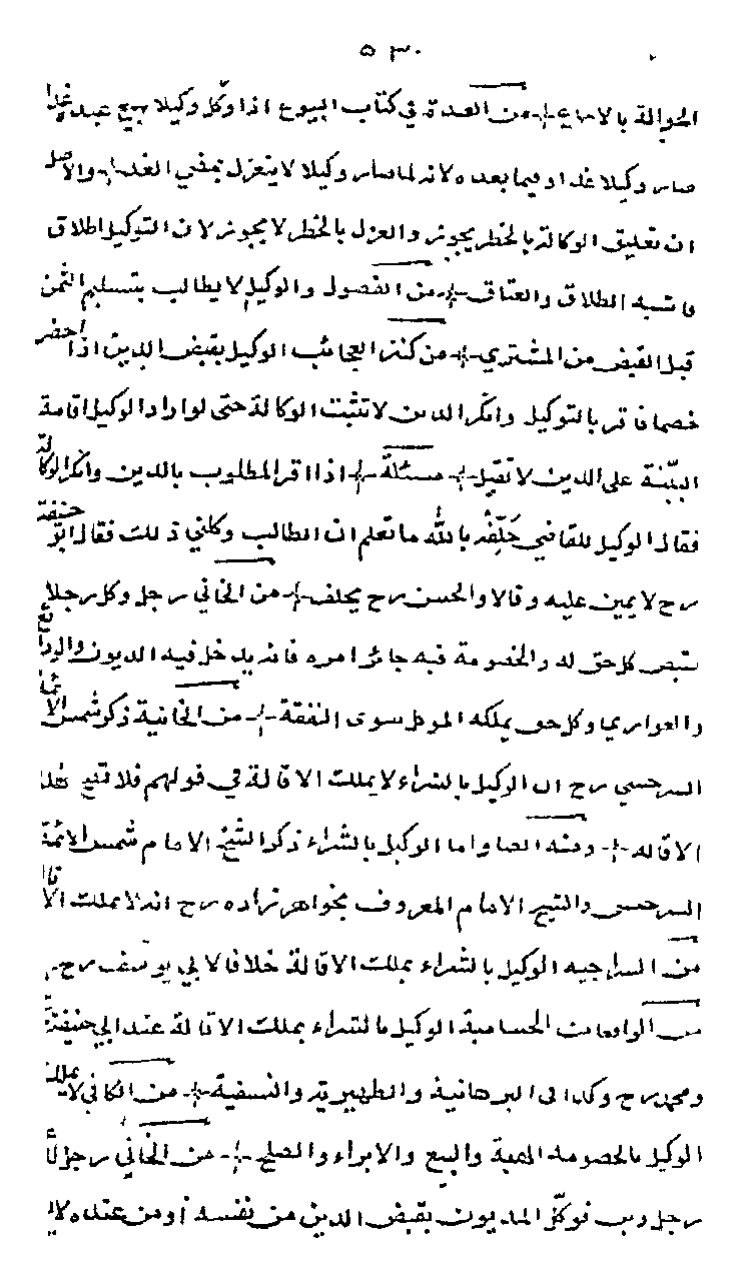 ٥٣٠
الحوالة بالاجماع من العدة في كتاب البيوع اذا وكّل وكيلا ببيع عبده غدا
صار وكيلا غدا وفيما بعده لانه لما صار وكيلا لا ينعزل بمضي الغد والاصل
ان تعليق الوكالة بالخطر يجوز والعزل بالخطر لا يجوز لان التوكيل اطلاق
فاشبه الطلاق والعتاق من الفصول والوكيل لا يطالب بتسليم الثمن
قبل القبض من المشتري من كنز العجائب الوكيل بقبض الدين اذا احضر
خصما فاقر بالتوكيل وانكر الدين لا تثبت الوكالة حتى لو اراد الوكيل اقامة
البيّنة على الدين لا تقبل مسئلة اذا اقر المطلوب بالدين وانكر الوكالة
فقال الوكيل للقاضي حَلِّفْهُ بالله ما تعلم ان الطالب وكلني ذلك فقال ابو حنيفة
رح لا يمين عليه وقالا والحسن رح يحلف من الخاني رجل وكل رجلا
بقبض كل حق له والخصومة فيه جائز امره فانه يدخل فيه الديون والودائع
والعواري وكل حق يملكه الموكل سوى النفقة من الخانية ذكر شمس الائمة
السرخسي رح ان الوكيل بالشراء لا يملك الاقالة في قولهم فلا
الاقالة ومنه ايضا واما الوكيل بالشراء ذكر الشيخ الامام شمس الائمة
السرخسي والشيخ الامام المعروف بخواهر زاده رح انه لا يملك الاقالة
من السراجيه الوكيل بالشراء يملك الاقالة خلافا لابي يوسف رح
من الواقعات الحسامية الوكيل بالشراء يملك الاقالة عند ابي حنيفة
ومحمد رح وكذا في البرهانية والظهيرية والنسفية من الكافي لا يملك
الوكيل بالخصومة الهبة والبيع والابراء والصلح من الخاني رجل
رجل دين فوكّل المديون بقبض الدين من نفسه او من عنده لا